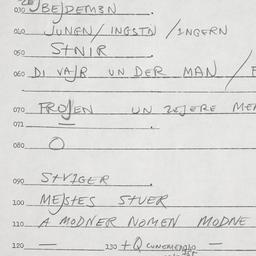 030 BEJDEMEN.
040 JUNEN/INGSTN/INGERN
050 STNIR.
060 DI VAJR UN DER MAN/
070 FROJEN UN ZEJERE
071 —.
080 O
090 STVIGER.
100 MEJSTES STUER
110 A MODNER NOMEN MODNE
120 — 130 +Q CUNEMENDO —